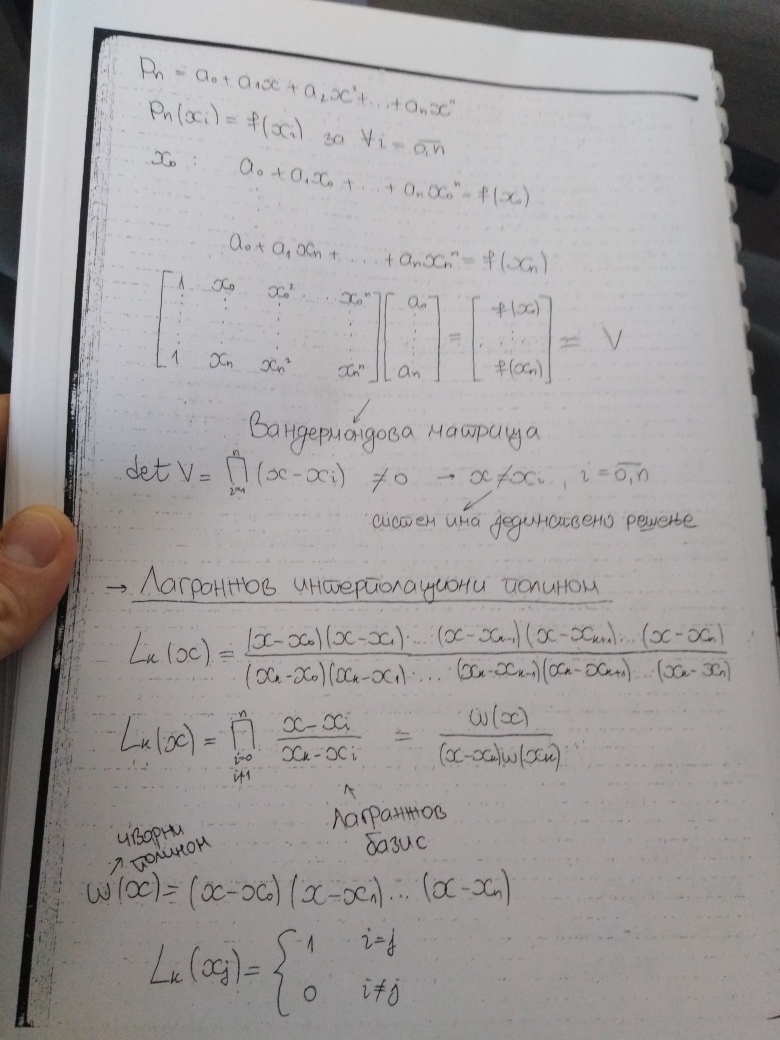 Pn = a₀ + a₁x + a₂x² + ... + aₙxⁿ
Pn(xi) = f(xi) за ∀i = 0,n
x₀ : a₀ + a₁x₀ + ... + aₙx₀ⁿ = f(x)
a₀ + a₁xₙ + ... + aₙxₙⁿ = f(xₙ)
[1 x₀ x₀² ... x₀ⁿ ⋮ 1 xₙ xₙ² xₙⁿ] [a₀ ⋮ aₙ] = [f(x₀) ⋮ f(xₙ)] = V
Вандермондова матрица
det V = ∏ⁿᵢ₌₁ (x - xi) ≠ 0 → x ≠ xi, i = 0,n
систем има јединствено решење
→ Лагранжов интерполациони полином
Lk(x) = (x-x₀)(x-x₁)·...·(x-xk-1)(x-xk+1)...(x-xn)
(xk-x₀)(xk-x₁)·...(xk-xk-1)(xk-xk+1)...(xk-xn)
Lk(x) = ∏ⁿ i=0 i≠1 (x-xi)/(xk-xi) = ω(x)/((x-xk)ω(xk))
Лагранжов
базис
чворни
полином
ω(x) = (x-x₀)(x-x₁)...(x-xn)
Lk(xj) = { 1 i=j
0 i≠j